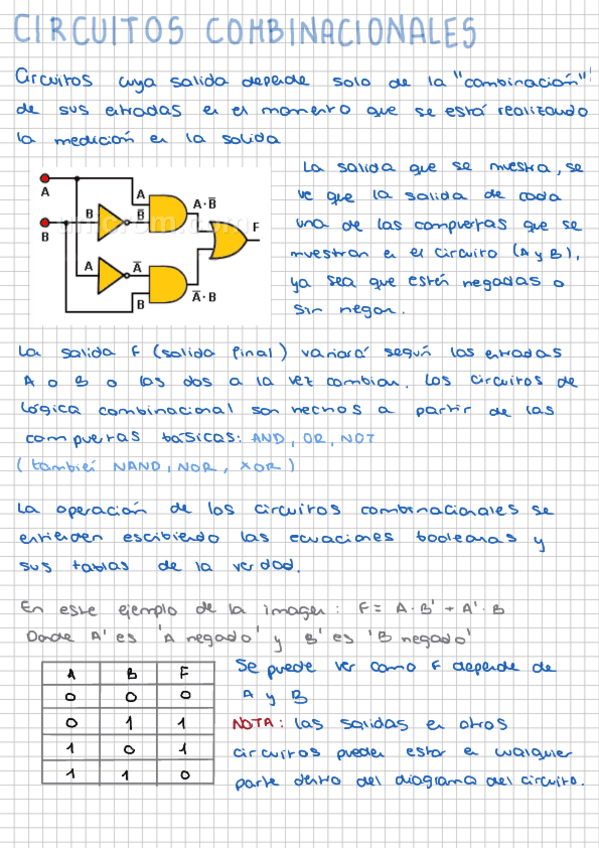 CIRCUITOS COMBINACIONALES
Circuitos cuya salida depende solo de la "combinación"
de sus entradas en el momento que se está realizando
la medición en la salida
A
B
B
A
A
B̅
A̅
B
A·B̅
A̅·B
F
La salida que se muestra, se
ve que la salida de cada
una de las compuertas que se
muestran en el circuito (A y B),
ya sea que estén negadas o
sin negar.
La salida F (salida final) variará según las entradas
A o B o las dos a la vez cambian. Los circuitos de
lógica combinacional son hechos a partir de las
compuertas básicas: AND, OR, NOT
(también NAND, NOR, XOR)
La operación de los circuitos combinacionales se
entienden escribiendo las ecuaciones booleanas y
sus tablas de la verdad.
En este ejemplo de la imagen: F = A·B' + A'·B
Donde A' es 'A negado' y B' es 'B negado'
A B F
0 0 0
0 1 1
1 0 1
1 1 0
Se puede ver como F depende de
A y B
NOTA: las salidas en otros
circuitos pueden estar en cualquier
parte dentro del diagrama del circuito.